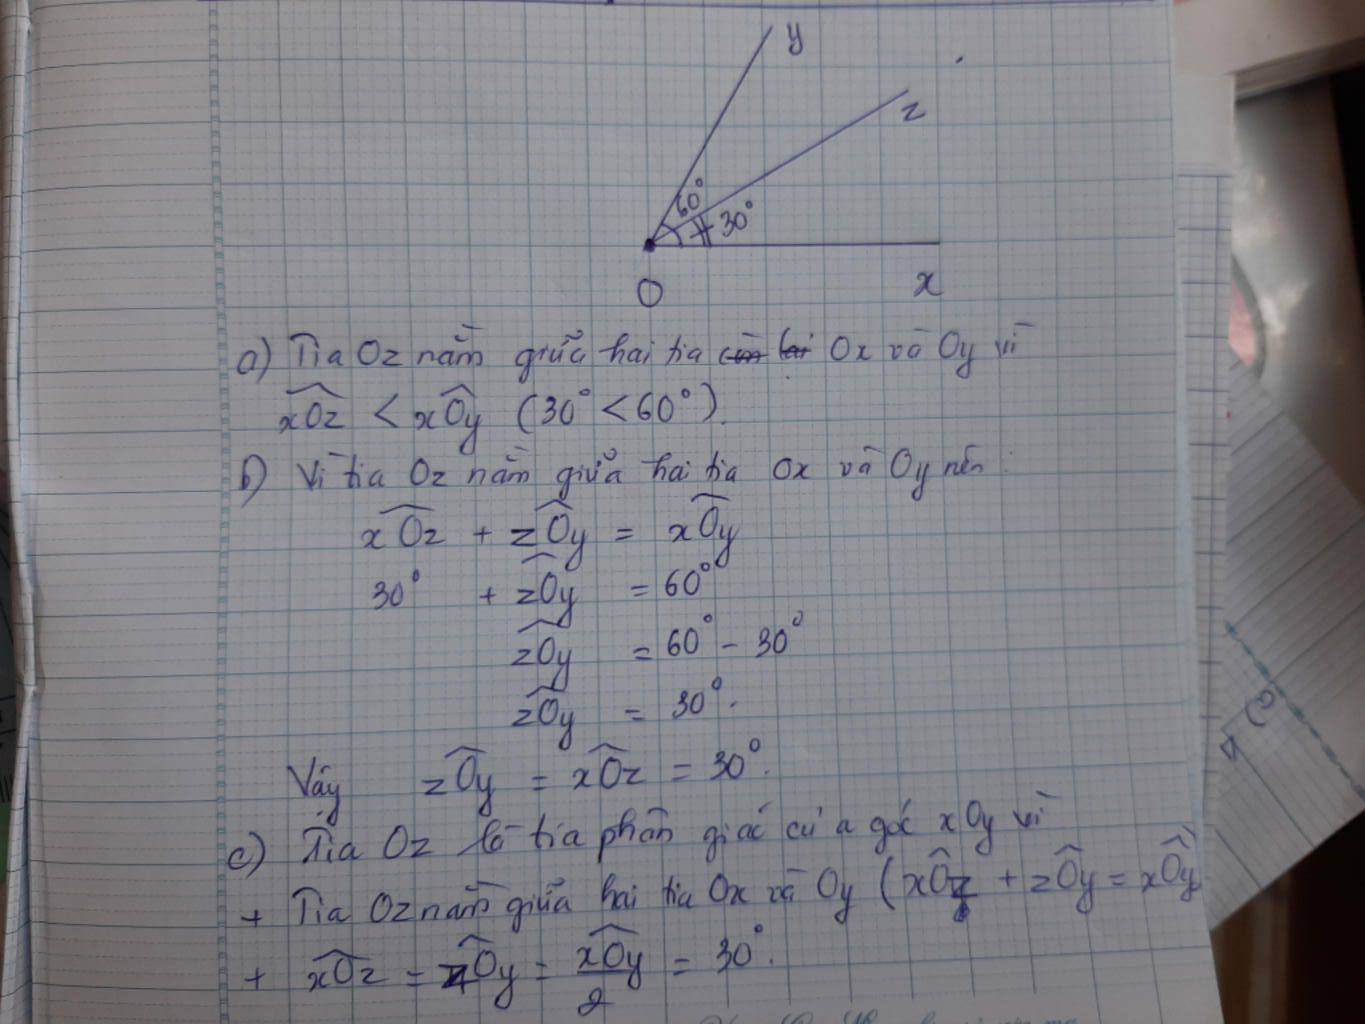 y
z
60°
30°
O
x
a) Tia Oz nằm giữa hai tia còn lại Ox và Oy vì
xOz < xOy (30° < 60°).
b) Vì tia Oz nằm giữa hai tia Ox và Oy nên:
xOz + zOy = xOy
30° + zOy = 60°
zOy = 60° - 30°
zOy = 30°.
Vậy zOy = xOz = 30°.
c) Tia Oz là tia phân giác của góc xOy vì
+ Tia Oz nằm giữa hai tia Ox và Oy (xOz + zOy = xOy
+ xOz = zOy = xOy/2 = 30°.
c)